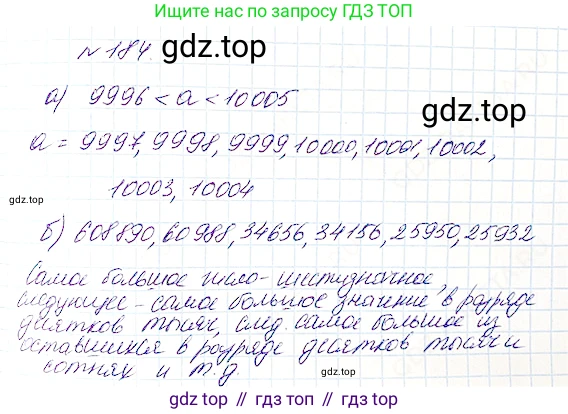 Ищите нас по запросу ГДЗ ТОП
№ 184.
gdz.top
а) 9996 < а < 10005
gdz.top
а = 9997, 9998, 9999, 10000, 10001, 10002,
10003, 10004
gdz.top
б) 608890, 60988, 34656, 34156, 25950, 25932
Самое большое число - шестизначное,
следующее - самое большое значение в разряде
десятков тысяч, след. самое большое из
оставшихся в разряде десятков тысяч и
сотнях и т.д.
gdz.top
gdz.top // gdz.top // gdz.top